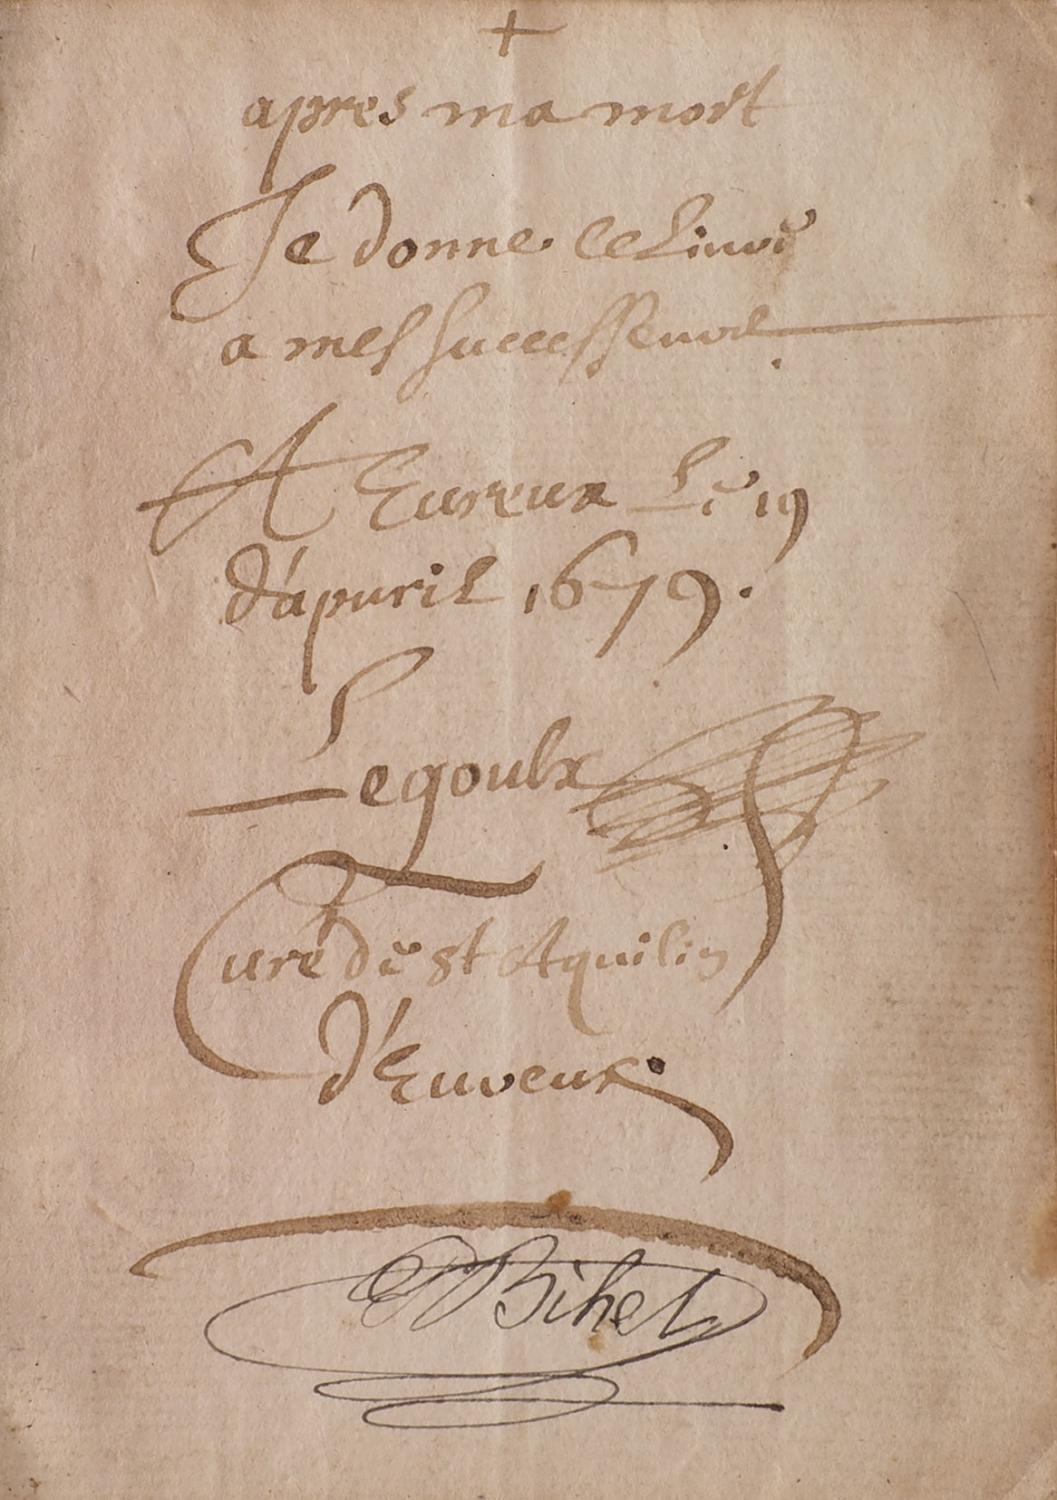 +
apres ma mort
Je donne ce Liure
a mes successeurs
A Eureux Le 19
d'apuril 1679.
Legoulx
Curé de st Aquilin
d'Eureux
Bihel